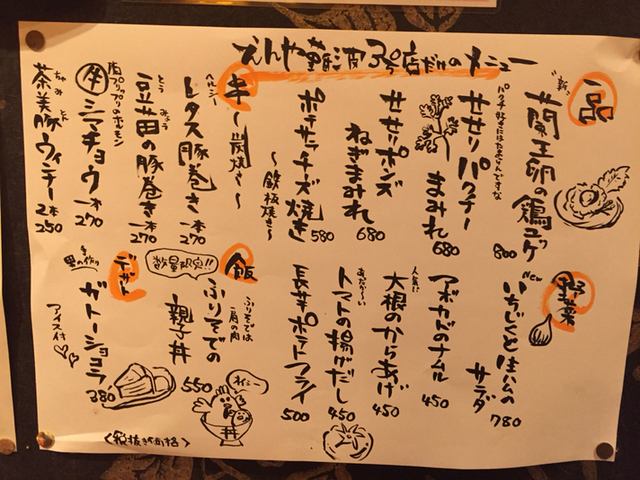 えんや
3号店だけのメニュー
一品
"新"
蘭王卵の鶏ユッケ
800
パクチー好きにはたまらんですな
せせりパクチーまみれ
680
せせりポンズ
ねぎまみれ
680
ポテサラチーズ焼き
〜鉄板焼き〜
580
串〜炭焼き〜
ヘルシー
レタス豚巻き
一本270
とうみょう
豆苗の豚巻き
一本270
プリップリのホルモン
シマチョウ
一本270
ちゃみとん
茶美豚ウィンナー
2本250
野菜
New
いちじくと生ハムの
サラダ
780
アボカドのナムル
450
人気に
大根のからあげ
450
あたか〜い
トマトの揚げだし
450
長芋ポテトフライ
500
飯
数量限定!!
ふりそでは
肩の肉
ふりそでの
親子丼
550
オイシー
丼
デザート
ガトーショコラ
380
アイス付
〈税抜き価格〉